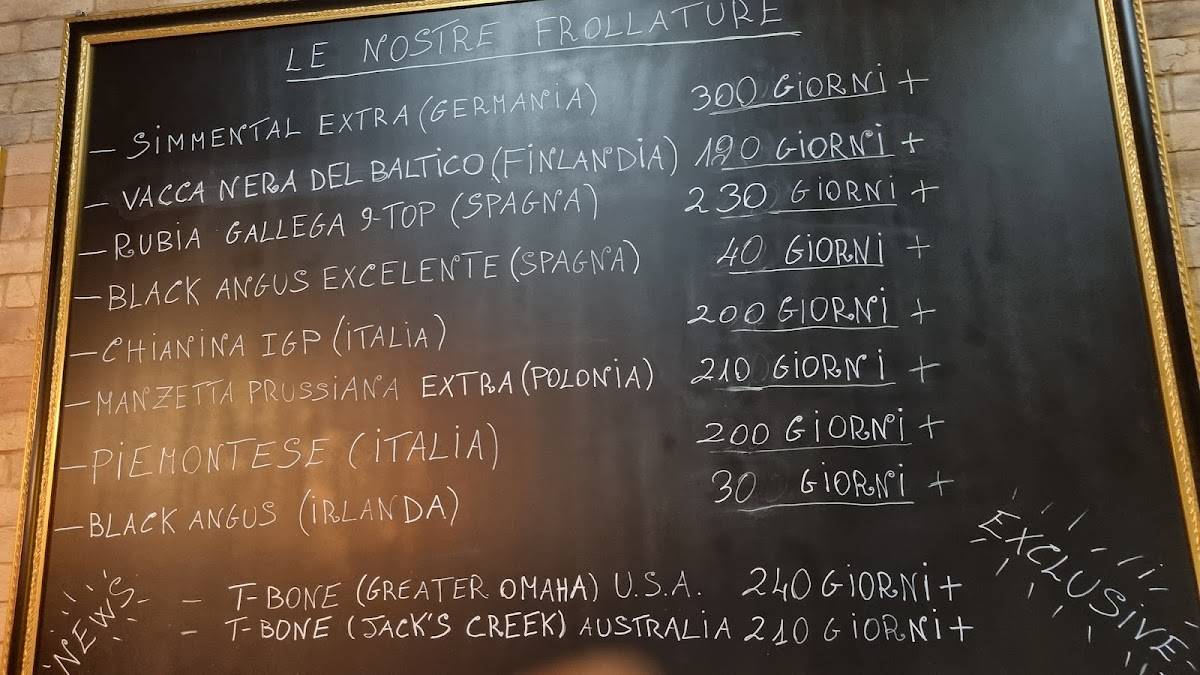 LE NOSTRE FROLLATURE
- SIMMENTAL EXTRA (GERMANIA) 300 GIORNI +
- VACCA NERA DEL BALTICO (FINLANDIA) 120 GIORNI +
- RUBIA GALLEGA 9-TOP (SPAGNA) 230 GIORNI +
- BLACK ANGUS EXCELENTE (SPAGNA) 40 GIORNI +
- CHIANINA IGP (ITALIA) 200 GIORNI +
- MANZETTA PRUSSIANA EXTRA (POLONIA) 210 GIORNI +
- PIEMONTESE (ITALIA) 200 GIORNI +
- BLACK ANGUS (IRLANDA) 30 GIORNI +
NEWS
- T-BONE (GREATER OMAHA) U.S.A. 240 GIORNI +
- T-BONE (JACK'S CREEK) AUSTRALIA 210 GIORNI +
EXCLUSIVE